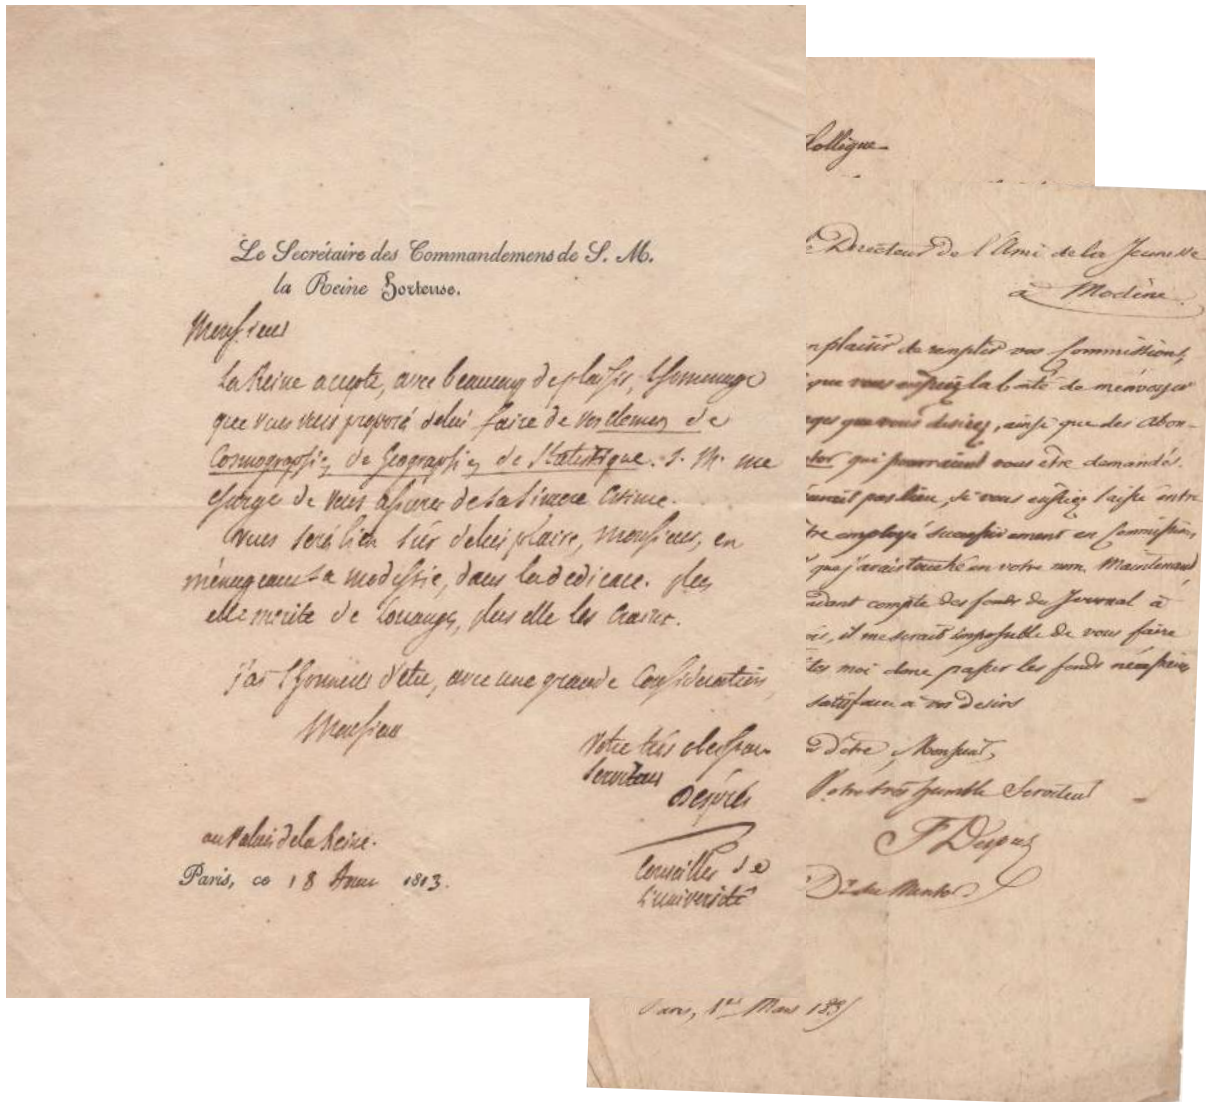 Le Secrétaire des Commandemens de S. M.
la Reine Hortense.
Monsieur
La Reine accepte, avec beaucoup de plaisir, l'hommage
que vous vous proposé de lui faire de vos élemens de
Cosmographie, de Géographie, de Statistique. S. M. me
charge de vous assurer de sa sincere estime.
Vous serés bien sûr de lui plaire, Monsieur, en
ménageant sa modestie, dans la dedicace. plus
elle merite de louanges, plus elle les craint.
j'ai l'honneur d'être, avec une grande Considération,
Monsieur
Votre très obeissant
Serviteur
Després
Conseiller de
l'université
au Palais de la Reine.
Paris, ce 18 1813.
Collègue
Directeur de l'Ami de la Jeunesse
à Modène
plaisir de remplir vos Commissions,
que vous ayez la bonté de m'envoyer
que vous desirez, ainsi que des abon-
qui pourraient vous être demandés.
pas lieu, si vous eussiez laissé entre
employé successivement en Commissions
que j'avais touché en votre nom. Maintenant
compte des fonds du Journal à
il me serait impossible de vous faire
moi donc passer les fonds nécessaires
satisfaire à vos desirs
d'être, Monsieur,
Votre très humble Serviteur
F Despres
Dr du Mentor
Paris, 1er Mars 183